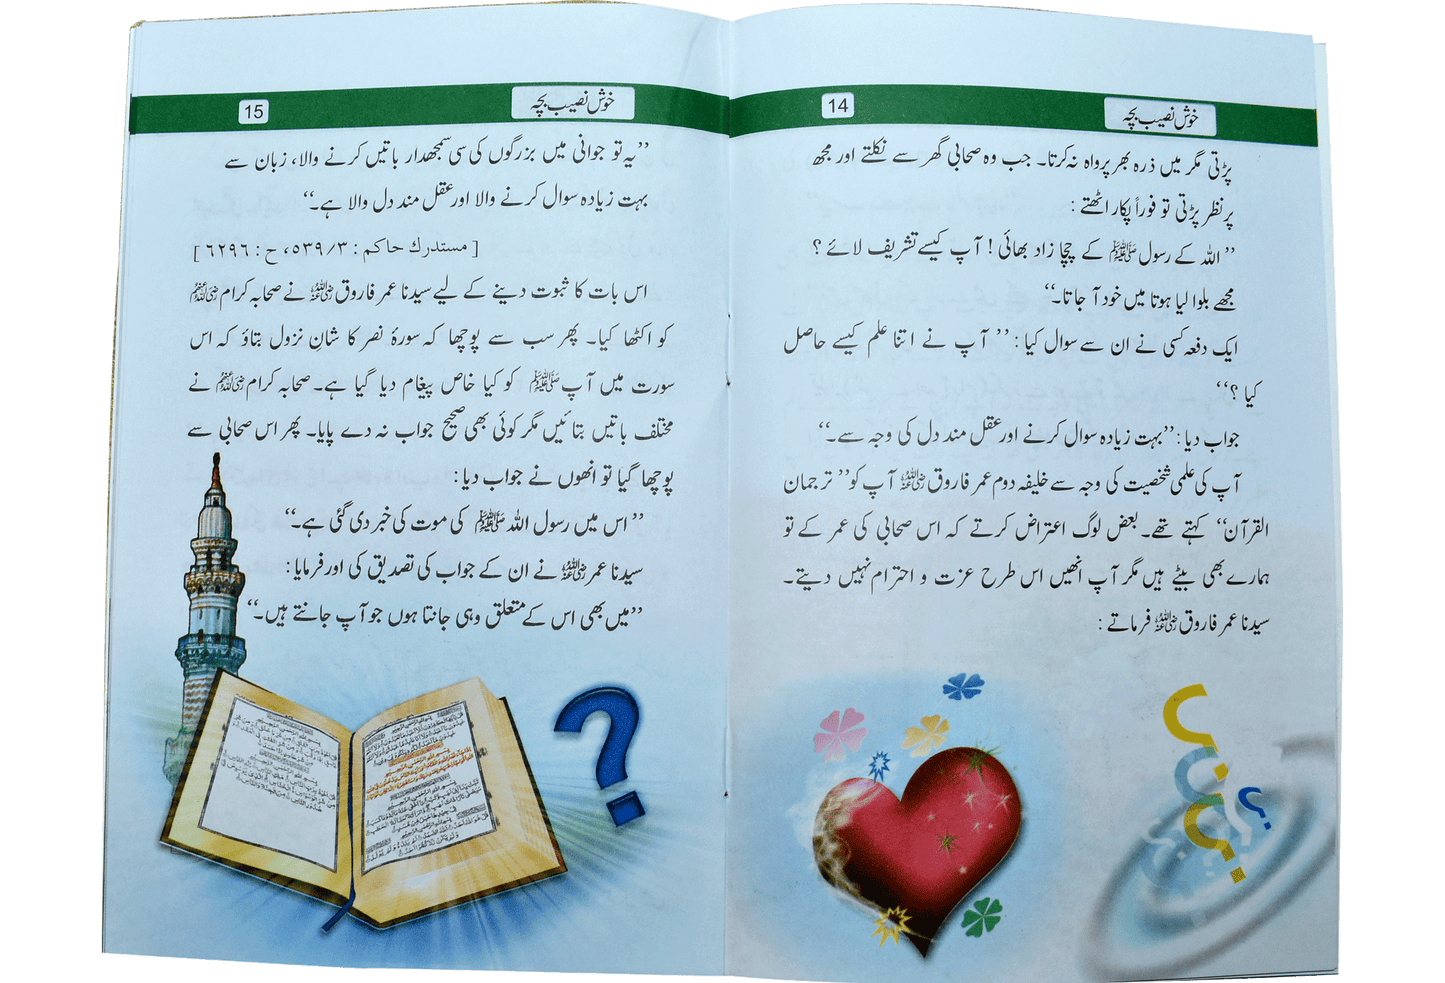 خوش نصیب بچہ
14
پڑتی مگر میں ذرہ بھر پرواہ نہ کرتا۔ جب وہ صحابی گھر سے نکلتے اور مجھ
پر نظر پڑتی تو فوراً پکار اٹھتے :
’’ اللہ کے رسول ﷺ کے چچا زاد بھائی ! آپ کیسے تشریف لائے ؟
مجھے بلوا لیا ہوتا میں خود آ جاتا۔‘‘
ایک دفعہ کسی نے ان سے سوال کیا : ’’ آپ نے اتنا علم کیسے حاصل
کیا ؟‘‘
جواب دیا : ’’بہت زیادہ سوال کرنے اور عقل مند دل کی وجہ سے۔‘‘
آپ کی علمی شخصیت کی وجہ سے خلیفہ دوم عمر فاروق رضی اللہ عنہ آپ کو ’’ ترجمان
القرآن‘‘ کہتے تھے۔ بعض لوگ اعتراض کرتے کہ اس صحابی کی عمر کے تو
ہمارے بھی بیٹے ہیں مگر آپ انھیں اس طرح عزت و احترام نہیں دیتے۔
سیدنا عمر فاروق رضی اللہ عنہ فرماتے :
خوش نصیب بچہ
15
’’یہ تو جوانی میں بزرگوں کی سی سمجھدار باتیں کرنے والا، زبان سے
بہت زیادہ سوال کرنے والا اور عقل مند دل والا ہے۔‘‘
[ مستدرك حاكم : ٥٣٩/٣، ح : ٦٢٩٦ ]
اس بات کا ثبوت دینے کے لیے سیدنا عمر فاروق رضی اللہ عنہ نے صحابہ کرام رضی اللہ عنہم
کو اکٹھا کیا۔ پھر سب سے پوچھا کہ سورۂ نصر کا شانِ نزول بتاؤ کہ اس
سورت میں آپ ﷺ کو کیا خاص پیغام دیا گیا ہے۔ صحابہ کرام رضی اللہ عنہم نے
مختلف باتیں بتائیں مگر کوئی بھی صحیح جواب نہ دے پایا۔ پھر اس صحابی سے
پوچھا گیا تو انھوں نے جواب دیا :
’’ اس میں رسول اللہ ﷺ کی موت کی خبر دی گئی ہے۔‘‘
سیدنا عمر رضی اللہ عنہ نے ان کے جواب کی تصدیق کی اور فرمایا :
’’میں بھی اس کے متعلق وہی جانتا ہوں جو آپ جانتے ہیں۔‘‘